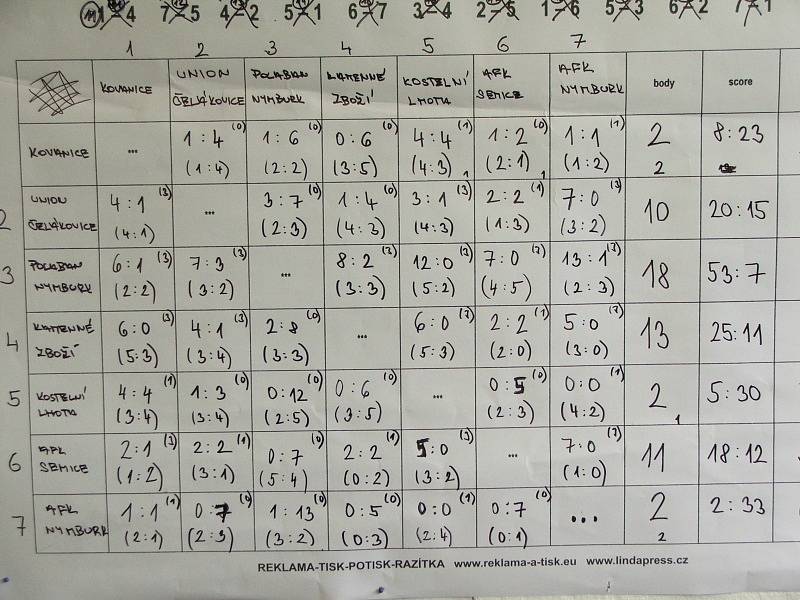 11 1 4 7 5 4 2 5 1 6 7 3 4 2 5 1 6 5 3 6 2 7 1
1 2 3 4 5 6 7
KOVANICE UNION ČELÁKOVICE POLABAN NYMBURK KAMENNÉ ZBOŽÍ KOSTELNÍ LHOTA AFK SEMICE AFK NYMBURK body score
KOVANICE ... 1:4 (0) 1:6 (0) 0:6 (0) 4:4 (1) 1:2 (0) 1:1 (1) 2 8:23
(1:4) (2:2) (3:5) (4:3) (2:1) (1:2) 2
2 UNION ČELÁKOVICE 4:1 (3) ... 3:7 (0) 1:4 (0) 3:1 (3) 2:2 (1) 7:0 (3) 10 20:15
(4:1) (2:3) (4:3) (4:3) (1:3) (3:2)
3 POLABAN NYMBURK 6:1 (3) 7:3 (3) ... 8:2 (3) 12:0 (3) 7:0 (3) 13:1 (3) 18 53:7
(2:2) (3:2) (3:3) (5:2) (4:5) (2:3)
4 KAMENNÉ ZBOŽÍ 6:0 (3) 4:1 (3) 2:8 (0) ... 6:0 (3) 2:2 (1) 5:0 (3) 13 25:11
(5:3) (3:4) (3:3) (5:3) (2:0) (3:0)
5 KOSTELNÍ LHOTA 4:4 (1) 1:3 (0) 0:12 (0) 0:6 (0) ... 0:5 (0) 0:0 (1) 2 5:30
(3:4) (3:4) (2:5) (3:5) (2:3) (4:2) 1
6 AFK SEMICE 2:1 (3) 2:2 (1) 0:7 (0) 2:2 (1) 5:0 (3) ... 7:0 (3) 11 18:12
(1:2) (3:1) (5:4) (0:2) (3:2) (1:0)
7 AFK NYMBURK 1:1 (1) 0:7 (0) 1:13 (0) 0:5 (0) 0:0 (1) 0:7 (0) ... 2 2:33
(2:1) (2:3) (3:2) (0:3) (2:4) (0:1) 2
REKLAMA-TISK-POTISK-RAZÍTKA www.reklama-a-tisk.eu www.lindapress.cz